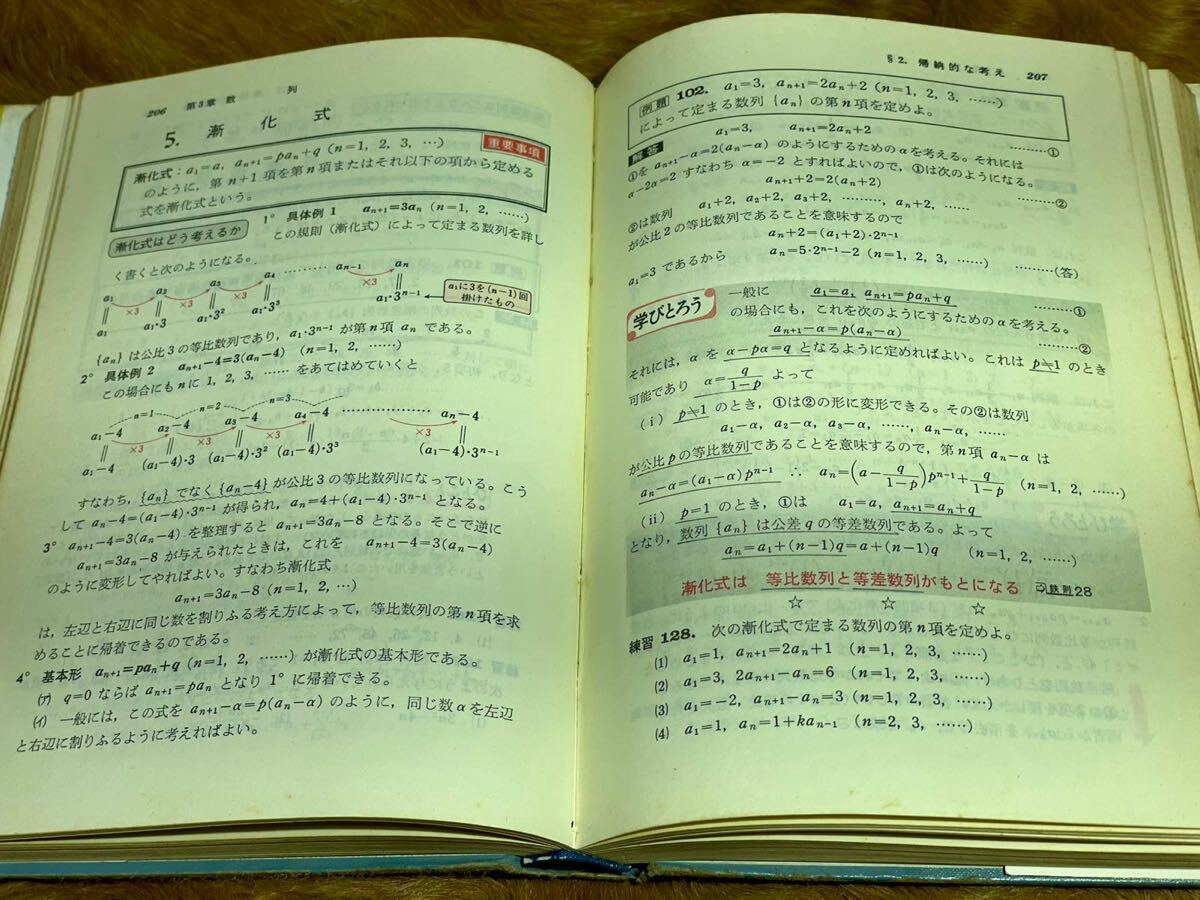 206 第3章 数 列
5. 漸 化 式
重要事項
漸化式：a₁=a, aₙ₊₁=paₙ+q (n=1, 2, 3, …)
のように，第 n+1 項を第 n 項またはそれ以下の項から定める
式を漸化式という。
漸化式はどう考えるか
1° 具体例 1 aₙ₊₁=3aₙ (n=1, 2, ……)
この規則（漸化式）によって定まる数列を詳し
く書くと次のようになる。
a₁ a₂ a₃ a₄ ……… aₙ₋₁ aₙ
×3 ×3 ×3 ×3
‖ ‖ ‖ ‖ ‖
a₁ a₁·3 a₁·3² a₁·3³ a₁·3ⁿ⁻¹
a₁に3を(n−1)回
掛けたもの
{aₙ} は公比 3 の等比数列であり，a₁·3ⁿ⁻¹ が第 n 項 aₙ である。
2° 具体例 2 aₙ₊₁−4=3(aₙ−4) (n=1, 2, ……)
この場合にも n に 1, 2, 3, …… をあてはめていくと
n=1 n=2 n=3
a₁−4 a₂−4 a₃−4 a₄−4 ……………… aₙ−4
×3 ×3 ×3 ×3
‖ ‖ ‖ ‖ ‖
a₁−4 (a₁−4)·3 (a₁−4)·3² (a₁−4)·3³ (a₁−4)·3ⁿ⁻¹
すなわち，{aₙ} でなく {aₙ−4} が公比 3 の等比数列になっている。こう
して aₙ−4=(a₁−4)·3ⁿ⁻¹ が得られ，aₙ=4+(a₁−4)·3ⁿ⁻¹ となる。
3° aₙ₊₁−4=3(aₙ−4) を整理すると aₙ₊₁=3aₙ−8 となる。そこで逆に
aₙ₊₁=3aₙ−8 が与えられたときは，これを aₙ₊₁−4=3(aₙ−4)
のように変形してやればよい。すなわち漸化式
aₙ₊₁=3aₙ−8 (n=1, 2, …)
は，左辺と右辺に同じ数を割りふる考え方によって，等比数列の第 n 項を求
めることに帰着できるのである。
4° 基本形 aₙ₊₁=paₙ+q (n=1, 2, ……) が漸化式の基本形である。
(ｱ) q=0 ならば aₙ₊₁=paₙ となり 1° に帰着できる。
(ｲ) 一般には，この式を aₙ₊₁−α=p(aₙ−α) のように，同じ数 α を左辺
と右辺に割りふるように考えればよい。
§2. 帰納的な考え 207
例題 102. a₁=3, aₙ₊₁=2aₙ+2 (n=1, 2, 3, ……)
によって定まる数列 {aₙ} の第 n 項を定めよ。
解答 a₁=3, aₙ₊₁=2aₙ+2 ………①
①を aₙ₊₁−α=2(aₙ−α) のようにするための α を考える。それには
α−2α=2 すなわち α=−2 とすればよいので，①は次のようになる。
aₙ₊₁+2=2(aₙ+2) ………②
②は数列 a₁+2, a₂+2, a₃+2, ………, aₙ+2, ……
が公比 2 の等比数列であることを意味するので
aₙ+2=(a₁+2)·2ⁿ⁻¹
a₁=3 であるから aₙ=5·2ⁿ⁻¹−2 (n=1, 2, 3, ……) ………(答)
学びとろう
一般に a₁=a, aₙ₊₁=paₙ+q ………①
の場合にも，これを次のようにするための α を考える。
aₙ₊₁−α=p(aₙ−α) ………②
それには，α を α−pα=q となるように定めればよい。これは p≠1 のとき
可能であり α=q/(1−p) よって
(ⅰ) p≠1 のとき，①は②の形に変形できる。その②は数列
a₁−α, a₂−α, a₃−α, ……, aₙ−α, ……
が公比 p の等比数列であることを意味するので，第 n 項 aₙ−α は
aₙ−α=(a₁−α)pⁿ⁻¹ ∴ aₙ=(a−q/(1−p))pⁿ⁻¹+q/(1−p) (n=1, 2, ……)
(ⅱ) p=1 のとき，①は a₁=a, aₙ₊₁=aₙ+q
となり，数列 {aₙ} は公差 q の等差数列である。よって
aₙ=a₁+(n−1)q=a+(n−1)q (n=1, 2, ……)
漸化式は 等比数列と等差数列がもとになる ⇨鉄則28
☆ ☆ ☆
練習 128. 次の漸化式で定まる数列の第 n 項を定めよ。
(1) a₁=1, aₙ₊₁=2aₙ+1 (n=1, 2, 3, ……)
(2) a₁=3, 2aₙ₊₁−aₙ=6 (n=1, 2, 3, ……)
(3) a₁=−2, aₙ₊₁−aₙ=3 (n=1, 2, 3, ……)
(4) a₁=1, aₙ=1+kaₙ₋₁ (n=2, 3, ……)